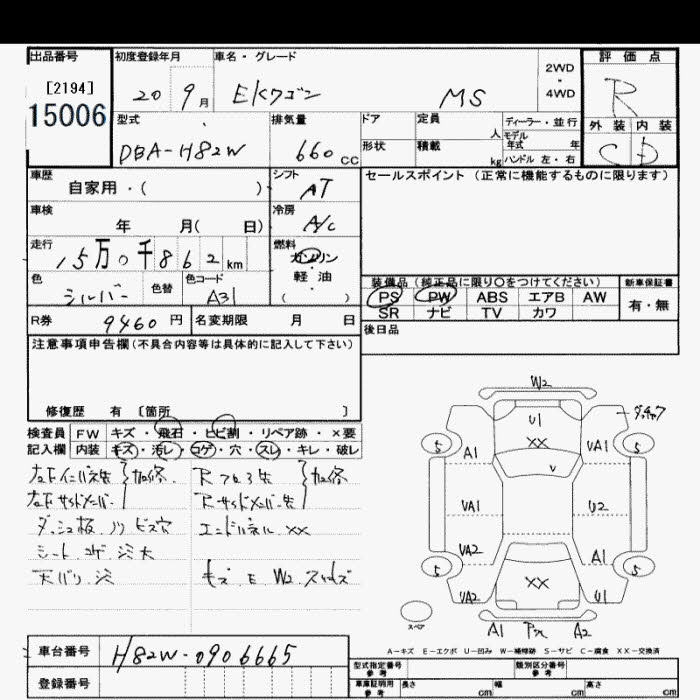 出品番号
[2194]
15006
初度登録年月
20 9月
車名・グレード
EKワゴン MS
2WD
・
4WD
評価点
R
型式
DBA-H82W
排気量
660 CC
ドア
形状
定員 人
積載 kg
ディーラー・並行
モデル
年式 年
ハンドル 左・右
外装 内装
C D
車歴
自家用・( )
シフト
AT
セールスポイント(正常に機能するものに限ります)
車検
年 月( 日)
冷房
A/C
走行
15万0千862km
燃料
ガソリン
・
軽油
( )
色
シルバー
色替
色コード
A31
装備品(純正品に限り○をつけてください)
PS PW ABS エアB AW
SR ナビ TV カワ
新車保証書
有・無
R券 9460円
名変期限 月 日
後日品
注意事項申告欄(不具合内容等は具体的に記入して下さい)
修復歴 有 〔箇所 〕
検査員
記入欄
FW キズ・飛石・ヒビ割・リペア跡・×要
内装 キズ・汚レ・コゲ・穴・スレ・キレ・破レ
左右インパネ先 加修
左右サイドメンバー
ダッシュ板 ノリ ビス穴
シート コゲ 汚大
天バリ 汚
Rフロア先 加修
Rサイドメンバー先
エンドパネル XX
キズ E W2
W2
U1
XX
V
A1
UA1
5
5
VA1
U2
VA2
A1
5
5
XX
VA2
U1
スペア
A1 A2
A-キズ E-エクボ U-凹み W-補修跡 S-サビ C-腐食 XX-交換済
車台番号
H82W-0906665
登録番号
型式指定番号
参考
類別区分番号
参考
車庫証明用
参考
長さ cm
幅 cm
高さ cm